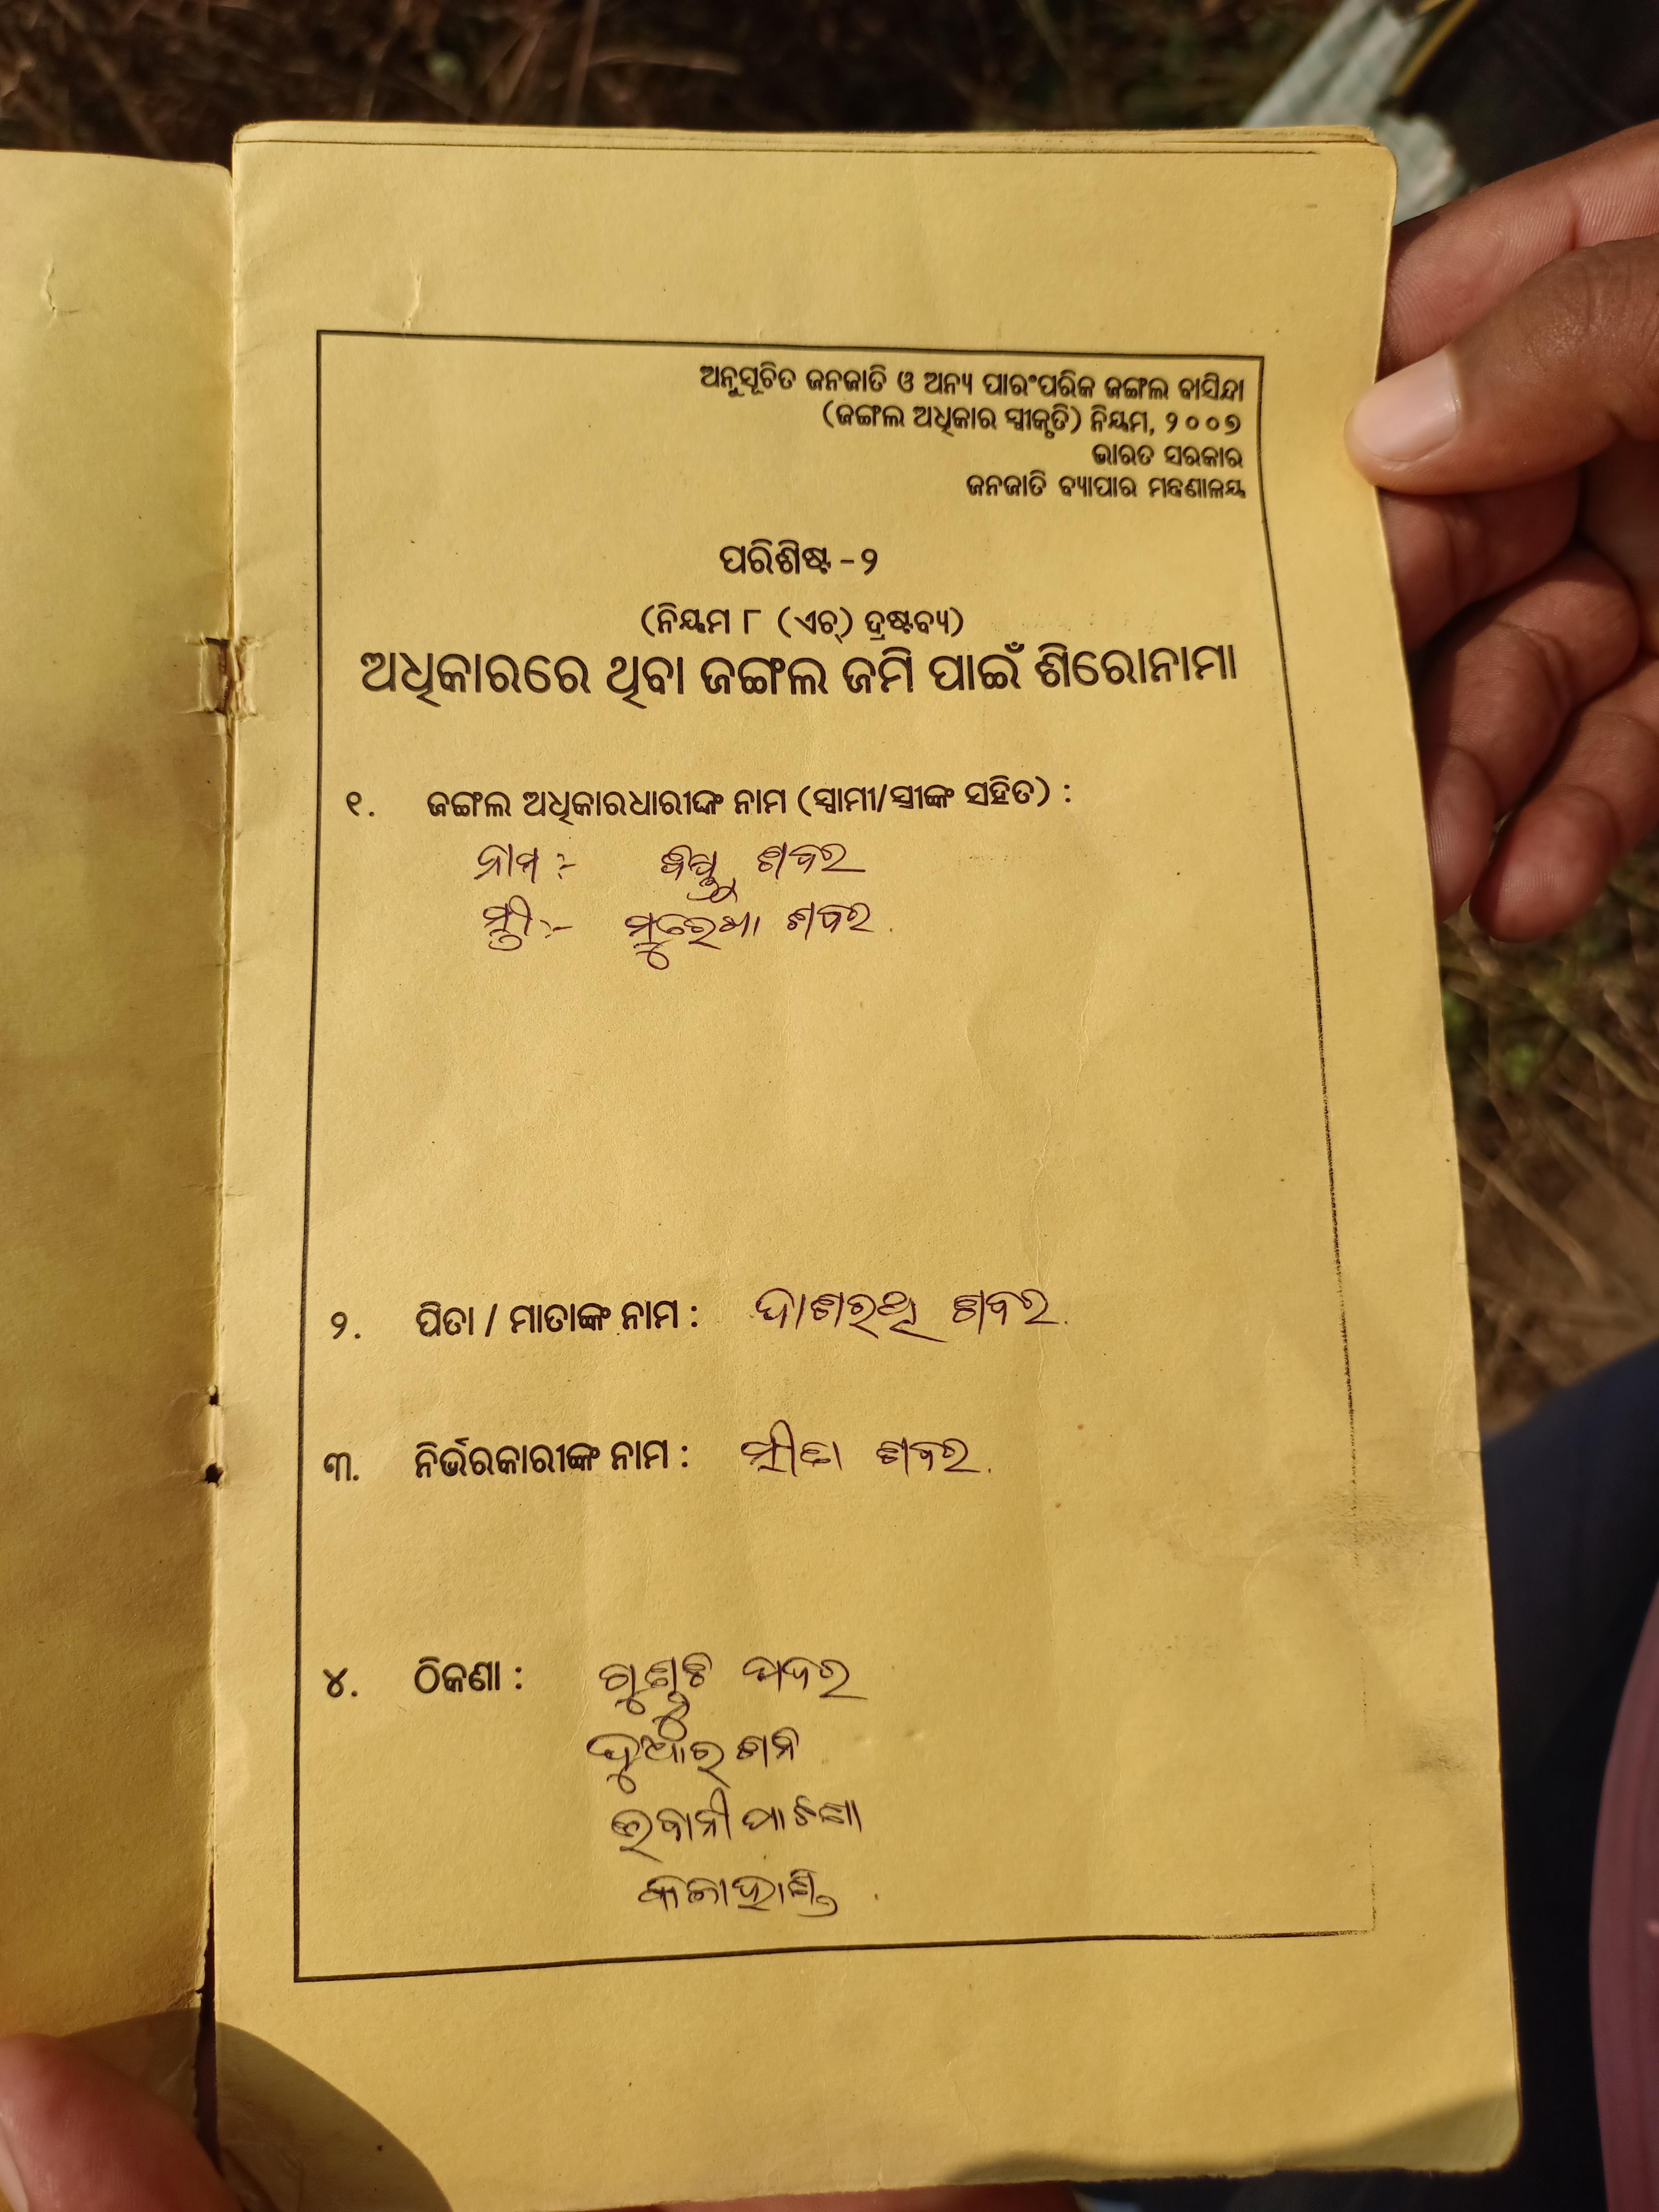 ଅନୁସୂଚିତ ଜନଜାତି ଓ ଅନ୍ୟ ପାରଂପରିକ ଜଙ୍ଗଲ ବାସିନ୍ଦା
(ଜଙ୍ଗଲ ଅଧିକାର ସ୍ୱୀକୃତି) ନିୟମ, ୨୦୦୭
ଭାରତ ସରକାର
ଜନଜାତି ବ୍ୟାପାର ମନ୍ତ୍ରଣାଳୟ
ପରିଶିଷ୍ଟ - ୨
(ନିୟମ ୮ (ଏଚ୍) ଦ୍ରଷ୍ଟବ୍ୟ)
ଅଧିକାରରେ ଥିବା ଜଙ୍ଗଲ ଜମି ପାଇଁ ଶିରୋନାମା
୧. ଜଙ୍ଗଲ ଅଧିକାରଧାରୀଙ୍କ ନାମ (ସ୍ୱାମୀ/ସ୍ତ୍ରୀଙ୍କ ସହିତ) :
ନାମ :- ଶବର
ସ୍ତ୍ରୀ :- ସୁରେଖା ଶବର.
୨. ପିତା / ମାତାଙ୍କ ନାମ : ଦାଶରଥି ଶବର.
୩. ନିର୍ଭରକାରୀଙ୍କ ନାମ : ଶବର.
୪. ଠିକଣା : ପଦର
ଦୁଆରଶନି
ଭବାନୀପାଟଣା
କଳାହାଣ୍ଡି.